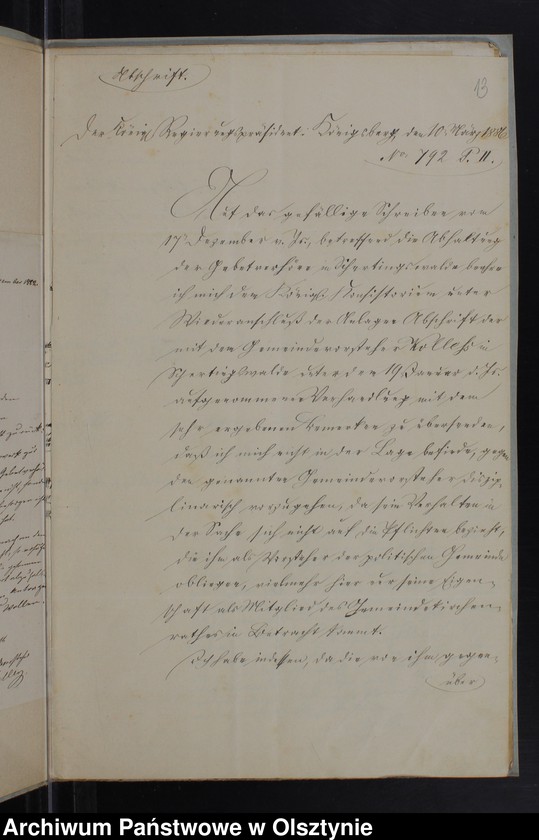 Abschrift.
13
Der Königl. Regierungspräsident. Königsberg, den 10. März 18
No. 792 P. II.
Auf das gefällige Schreiben vom
17 Dezember v. Js., betreffend die Abhaltung
der Gebetverhöre in Schertingswalde beehre
ich mich dem Königl. Konsistorium unter
Wiederanschluß der Anlagen Abschrift der
mit dem Gemeindevorsteher in
Schertingswalde unter dem 19 Januar d. Js.
aufgenommenen Verhandlung mit dem
sehr ergebenen Bemerken zu übersenden,
daß ich mich nicht in der Lage befinde, gegen
den genannten Gemeindevorsteher diszip-
linarisch vorzugehen, da sein Verhalten in
der Sache sich nicht auf die Pflichten bezieht,
die ihm als Vorsteher der politischen Gemeinde
obliegen, vielmehr hier nur seine Eigen-
schaft als Mitglied des Gemeindekirchen-
rathes in Betracht kommt.
Ich habe indessen, da die von ihm gegen-
über
Archiwum Państwowe w Olsztynie